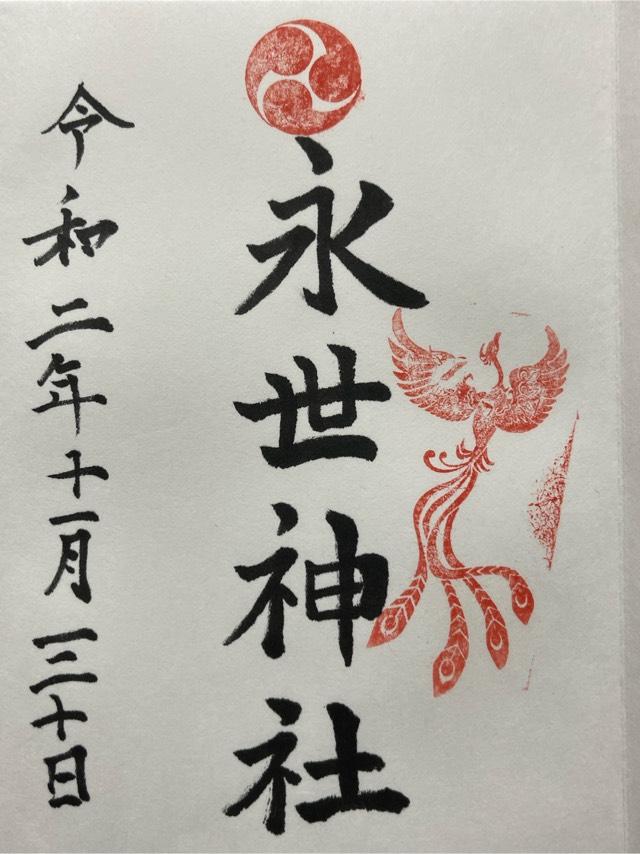 永世神社
令和二年十一月三十日